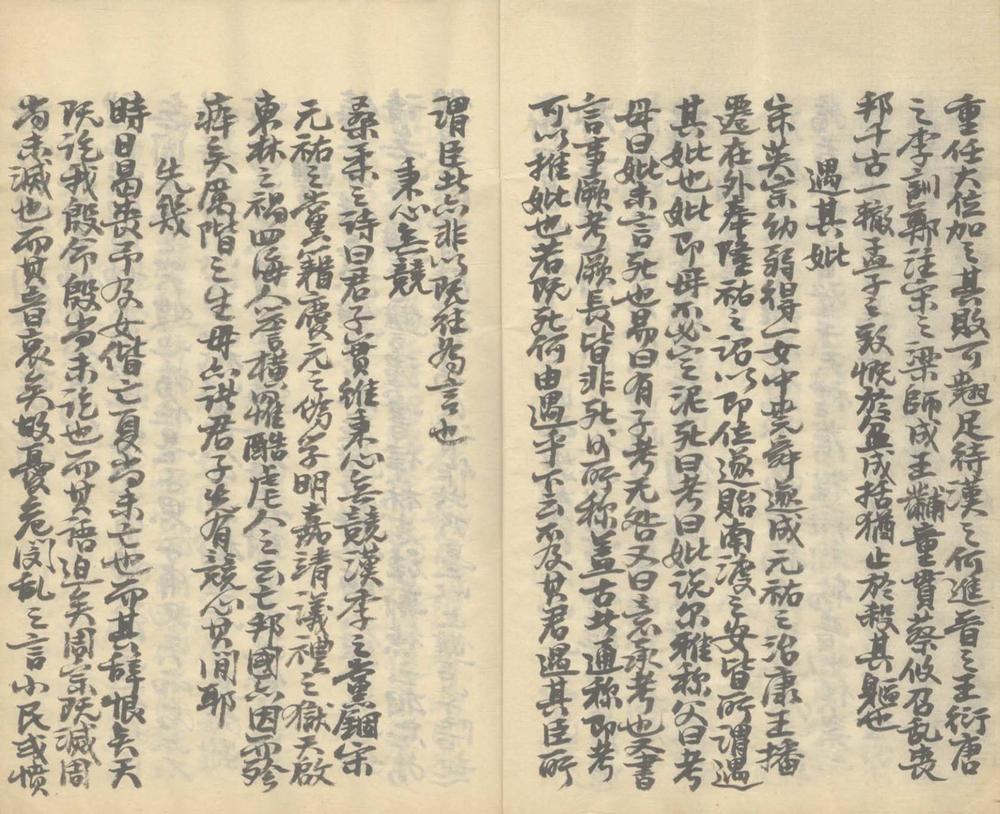 重任大位加之其敗可翹足待漢之何進晉之王衍唐
之李訓鄭注宋之梁師成王黼童貫蔡攸召乱喪
邦千古一轍孟子之致慨於盆成括猶止於殺其軀也
遇其妣
宋英宗幼弱得一女中堯舜遂成元祐之治康王播
遷在外奉隆祐之诏以即位遂貽南渡之安皆所謂遇
其妣也妣即母不必定泥死曰考曰妣说尔雅称父曰考
母曰妣未言死也易曰有子考无咎又曰意承考也又書
言事厥考厥長皆非死後所称盖古者通称即考
可以推妣也若既死何由遇乎下云不及其君遇其臣所
謂臣者亦非以既往為言也
秉心無競
桑柔之诗曰君子實維秉心無競漢季之黨錮宋
元祐之黨籍慶元之偽学明嘉靖議禮之獄天啟
東林之禍四海人荅橫罹酷虐人之云亡邦國亦因而殄
瘁矣厲階之生毋亦諸君子先有競心其间耶
先幾
時日曷喪予及女偕亡夏尚未亡也而其辞恨矣天
既讫我殷命殷尚未讫也而其语迫矣周宗既滅周
尚未滅也而其音哀矣故憂危闵乱之言小民或愤